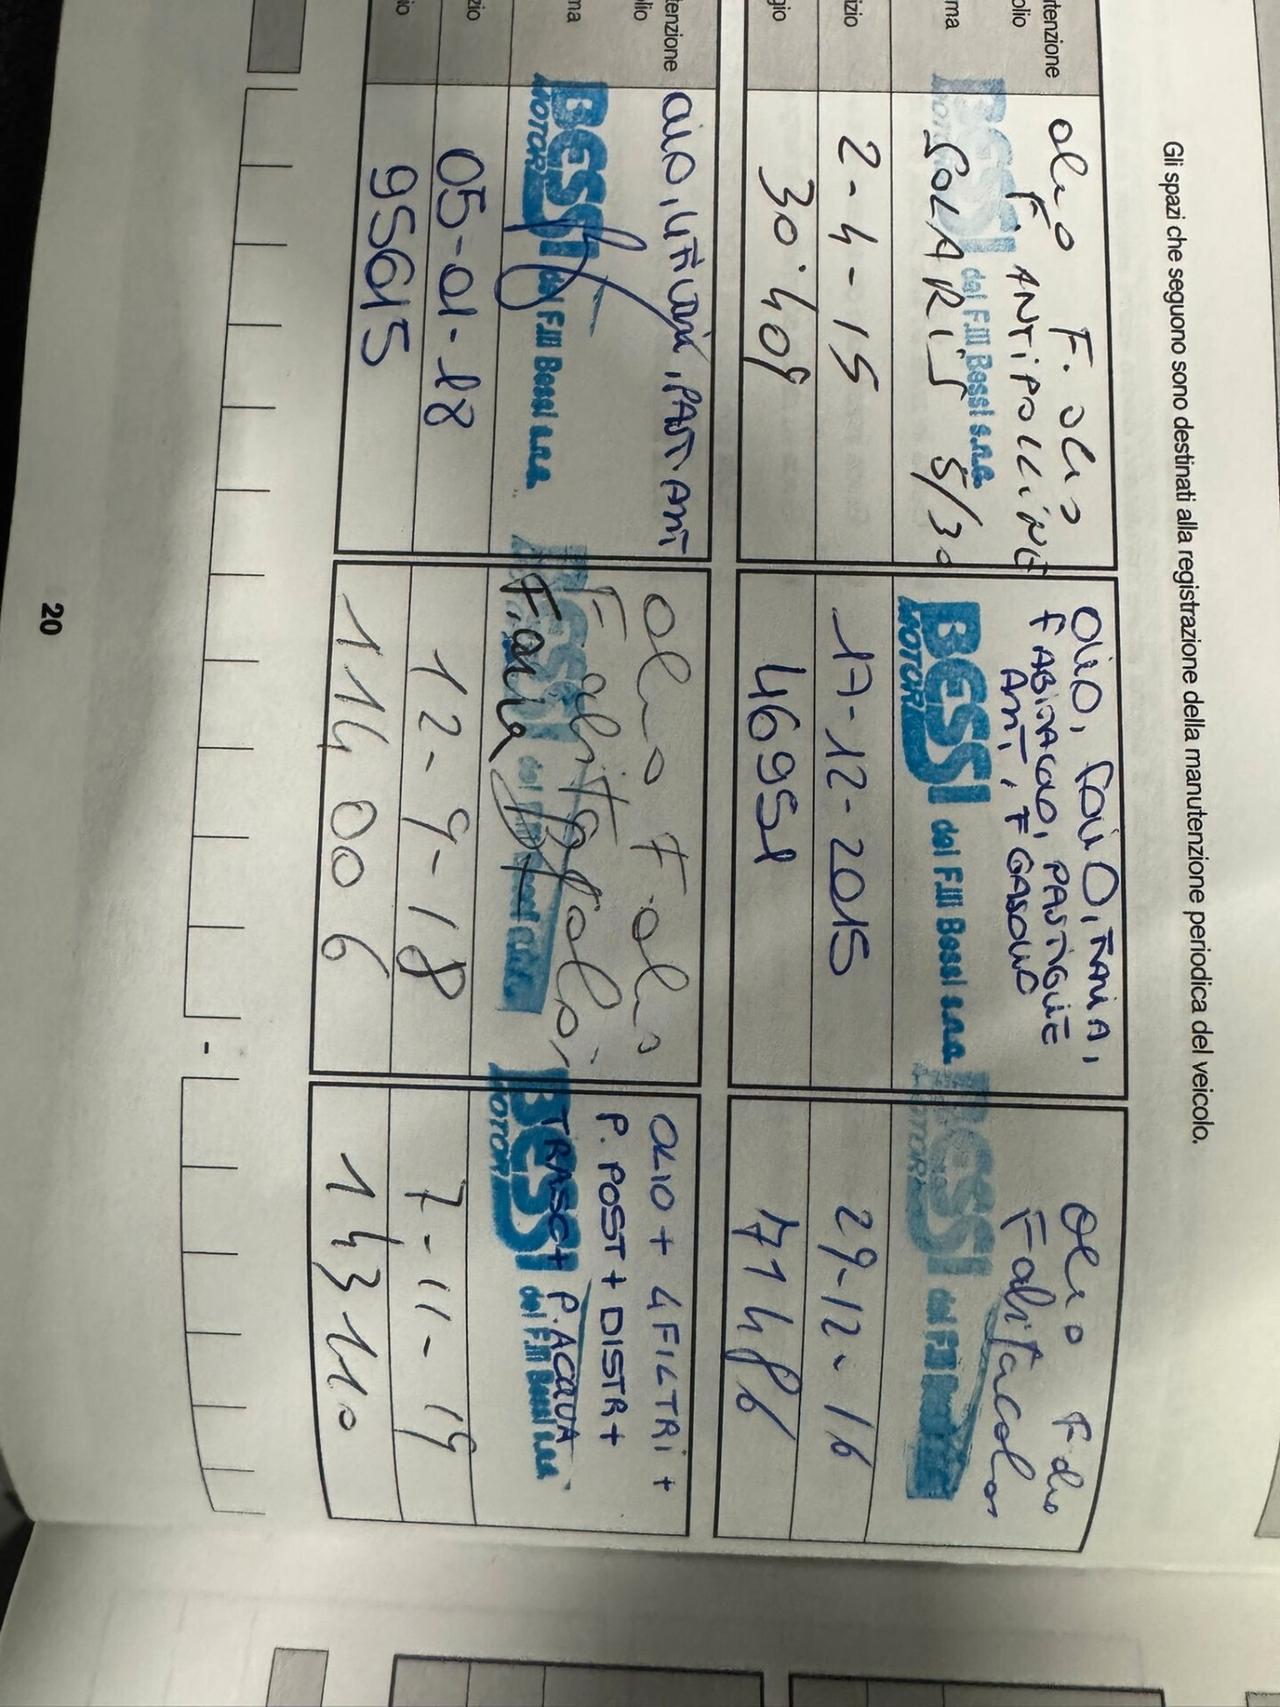 Gli spazi che seguono sono destinati alla registrazione della manutenzione periodica del veicolo.
tenzione
olio
ma
izio
gio
olio F. olio
F. ANTIPOLLINE
SOLARIS 5/30
BESSI
MOTOR
dei F.lli Bessi s.n.c.
2-4-15
30.409
OLIO,
FABITACOLO, PASTIGLIE
ANT, F GASOLIO
BESSI
MOTOR
dei F.lli Bessi s.n.c.
17-12-2015
46951
Olio F olio
F abitacolo
BESSI
MOTOR
dei F.lli
29-12-16
71486
tenzione
olio
ma
zio
io
OLIO, , PAST. ANT
BESSI
MOTOR
dei F.lli Bessi s.n.c.
05-01-18
95615
Olio F olio
F abitacolo,
F. aria
BESSI
dei
12-9-18
114006
OLIO + 4 FILTRI +
P. POST + DISTR +
TRASC + P. ACQUA
BESSI
MOTOR
dei F.lli Bessi s.n.c.
7-11-19
143110
-
20